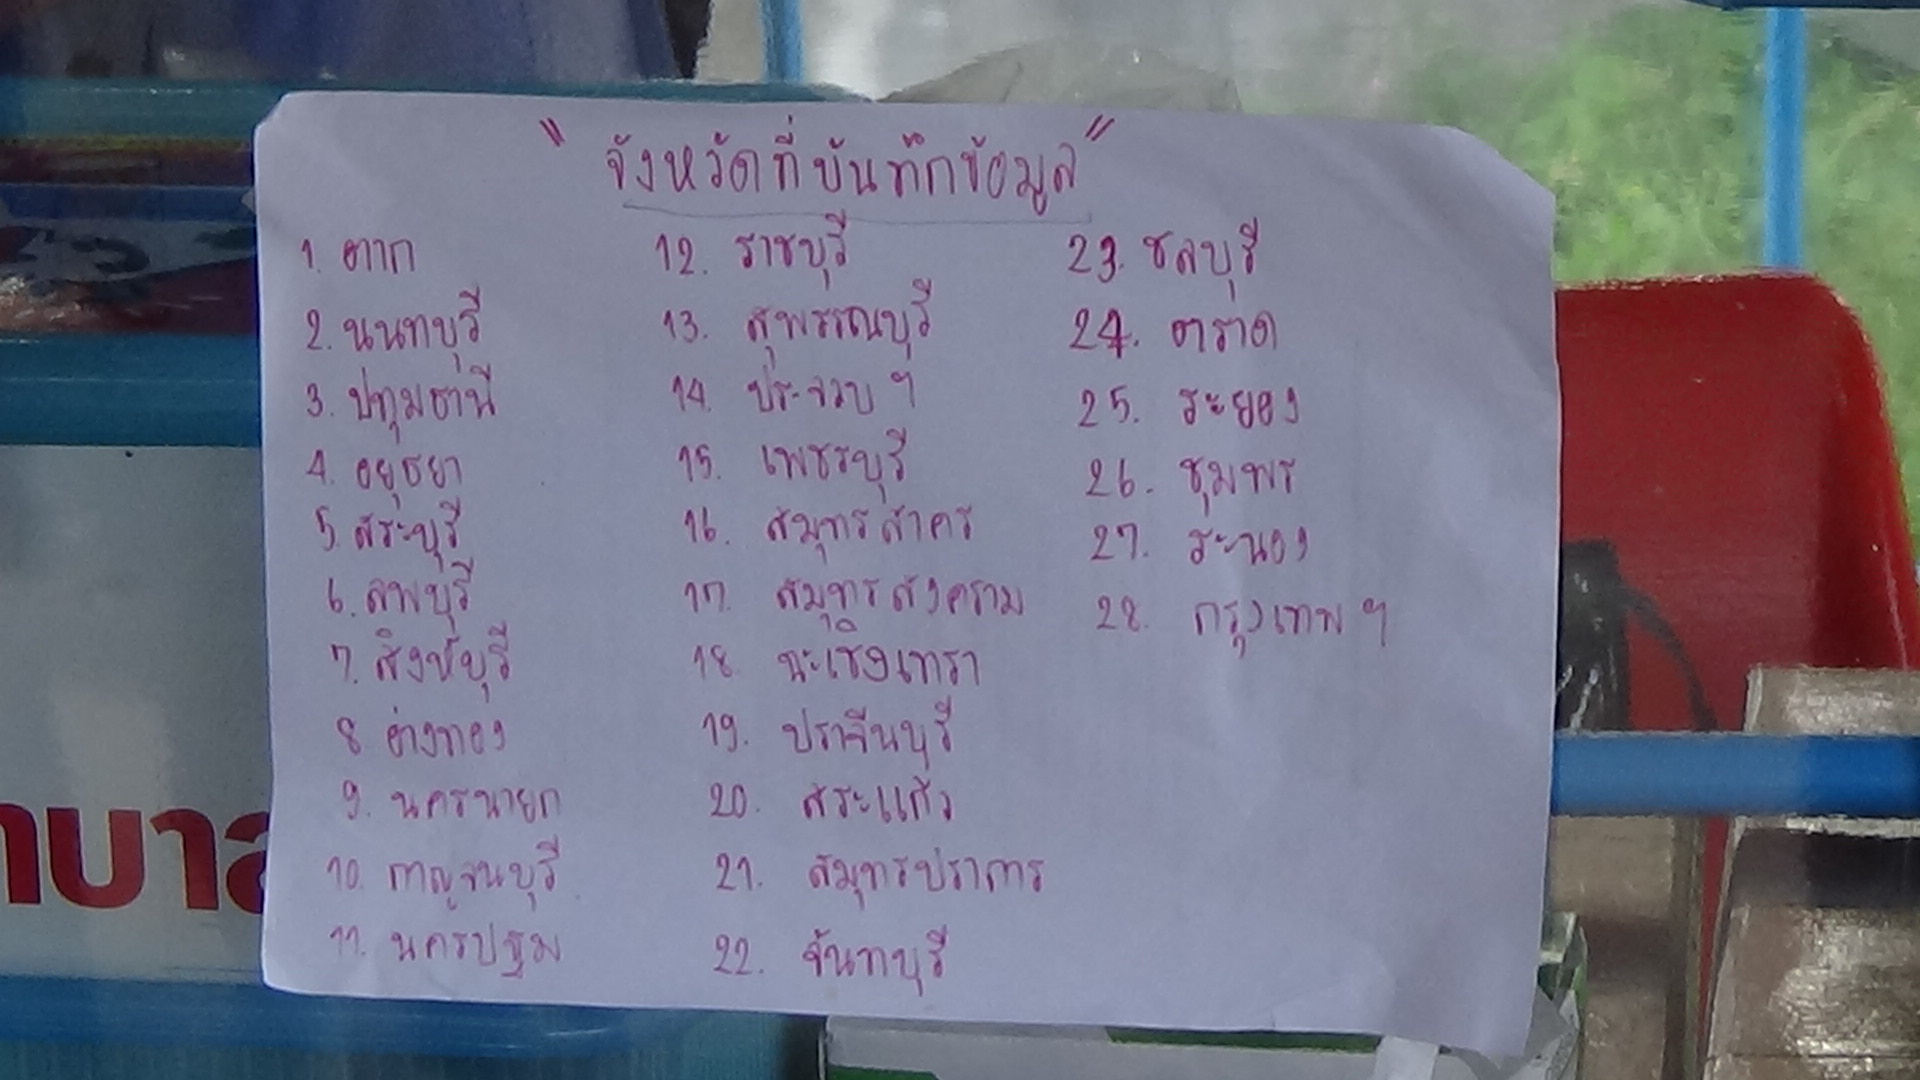 " จังหวัดที่บันทึกข้อมูล "
1. ตาก
2. นนทบุรี
3. ปทุมธานี
4. อยุธยา
5. สระบุรี
6. ลพบุรี
7. สิงห์บุรี
8 อ่างทอง
9. นครนายก
10. กาญจนบุรี
11. นครปฐม
12. ราชบุรี
13. สุพรรณบุรี
14 ประจวบ ฯ
15. เพชรบุรี
16. สมุทรสาคร
17. สมุทรสงคราม
18 ฉะเชิงเทรา
19. ปราจีนบุรี
20. สระแก้ว
21. สมุทรปราการ
22. จันทบุรี
23. ชลบุรี
24. ตราด
25. ระยอง
26. ชุมพร
27. ระนอง
28. กรุงเทพ ฯ